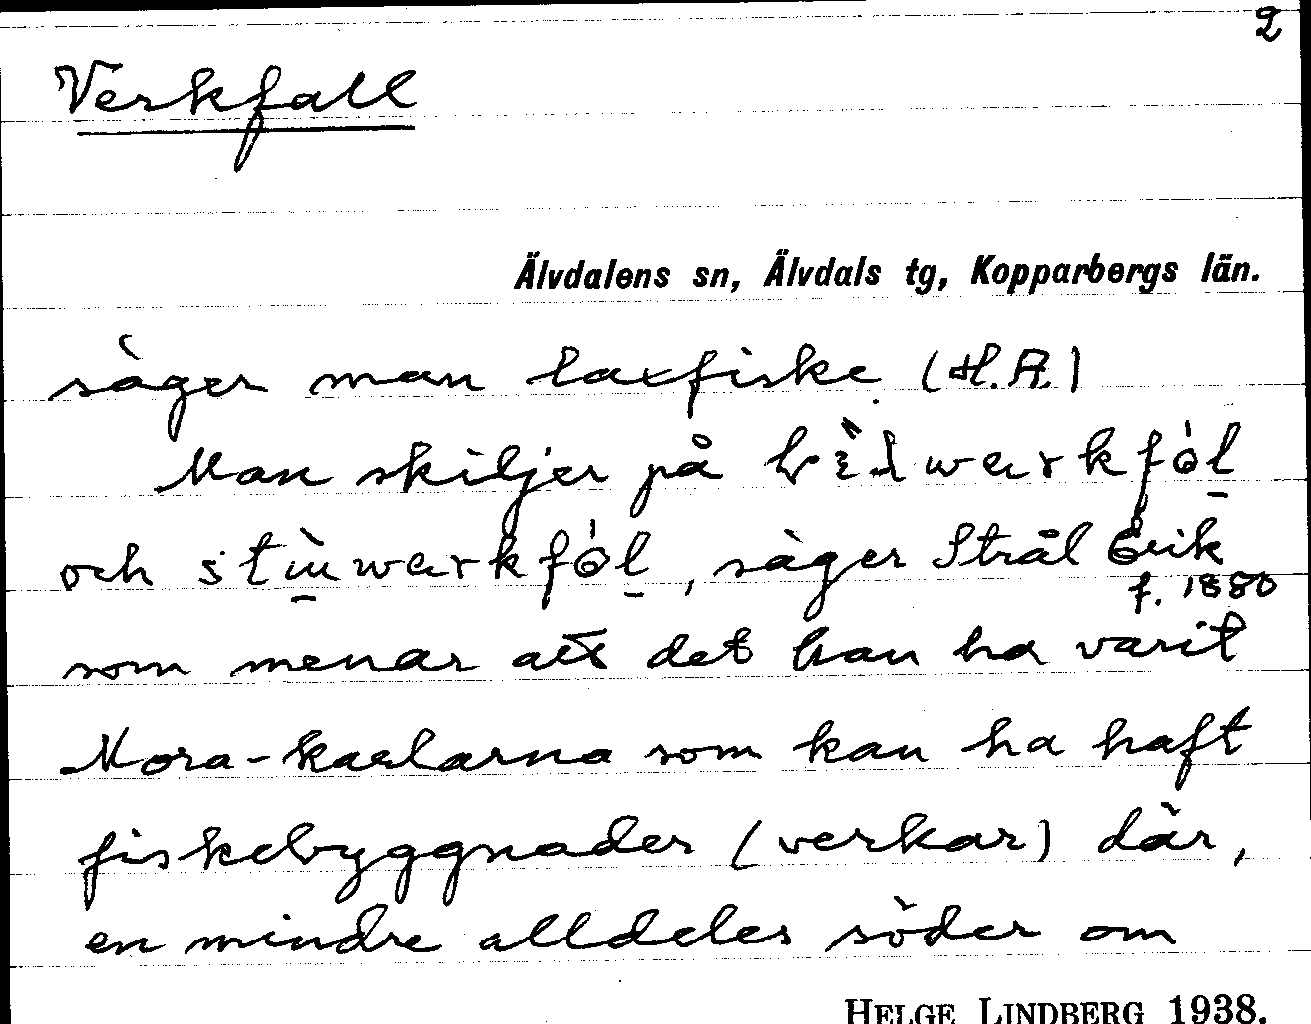 2
Verkfall
Älvdalens sn, Älvdals tg, Kopparbergs län.
säger man laxfiske (H.A.)
Man skiljer på
och säger Strål Erik
f. 1880
som menar att det kan ha varit
Mora-karlarna som kan ha haft
fiskebyggnader (verkar) där,
en mindre alldeles söder om
HELGE LINDBERG 1938.